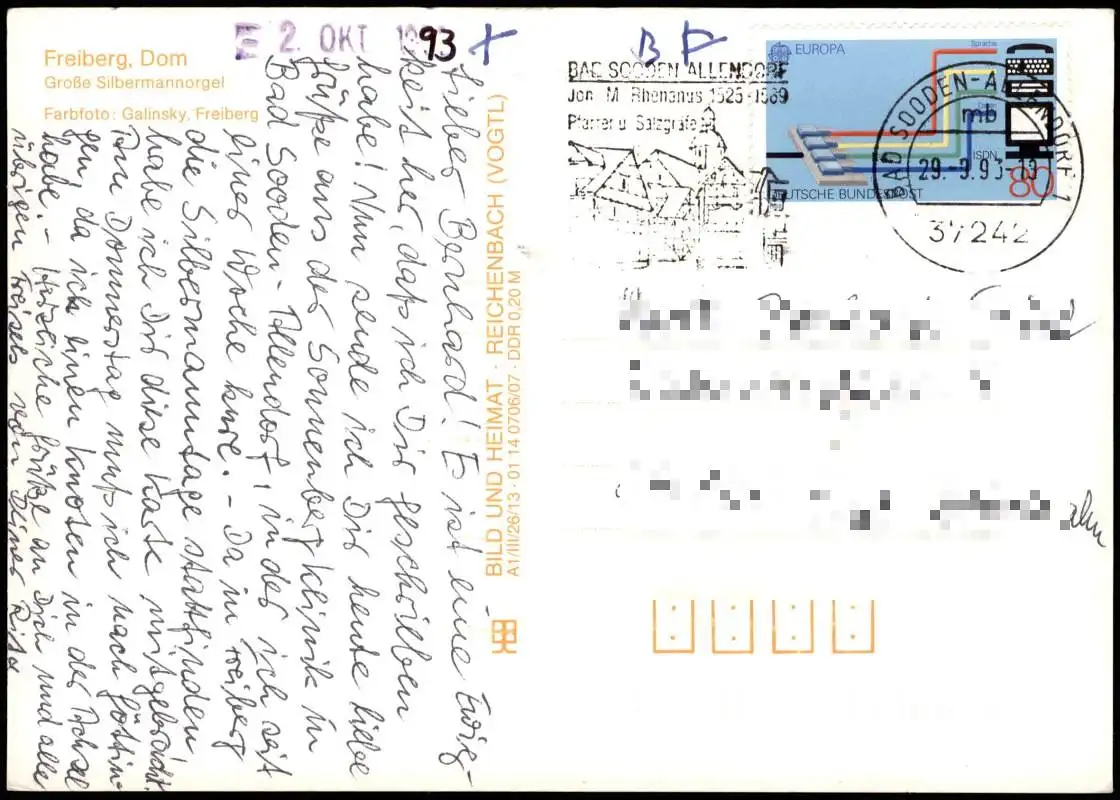 Freiberg, Dom
Große Silbermannorgel
Farbfoto: Galinsky, Freiberg
2. OKT 1993
B
BAD SOODEN-ALLENDORF
Joh. M. Rhenanus 1525-1589
Pfarrer u. Salzgräfe
EUROPA
Sprache
Daten
ISDN
DEUTSCHE BUNDESPOST
80
BAD SOODEN-ALLENDORF 1
mb
29.-9.93-13
37242
BILD UND HEIMAT · REICHENBACH (VOGTL)
A1/III/26/13 · 01 14 0706/07 · DDR 0,20 M
Lieber Bernhard! Es ist eine Ewig-
keit her, daß ich Dir geschrieben
habe! Nun sende ich Dir heute liebe
Grüße aus der Sonnenbergklinik in
Bad Sooden-Allendorf, in der ich seit
einer Woche kure. - Da in Freiberg
die Silbermanntage stattfinden,
habe ich Dir diese Karte mitgebracht.
Am Donnerstag muß ich nach Göttin-
gen, da ich einen Knoten in der Achsel
habe. - Herzliche Grüße an Dich und alle
übrigen von Deiner Rita